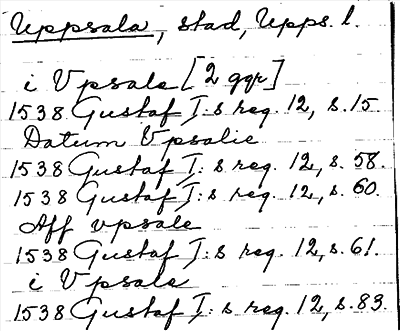 Uppsala, stad, Upps. l.
i Vpsale [2 ggr]
1538 Gustaf I:s reg. 12, s. 15.
Datum Vpsalie
1538 Gustaf I:s reg. 12, s. 58.
1538 Gustaf I:s reg. 12, s. 60.
Aff vpsale
1538 Gustaf I:s reg. 12, s. 61.
i Vpsale
1538 Gustaf I:s reg. 12, s. 83.